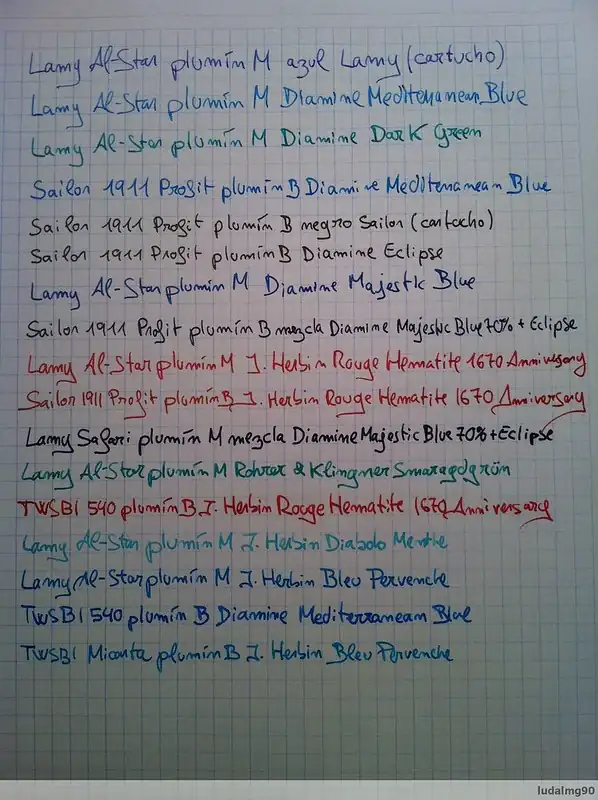 Lamy Al-Star plumín M azul Lamy (cartucho)
Lamy Al-Star plumín M Diamine Mediterranean Blue
Lamy Al-Star plumín M Diamine Dark Green
Sailor 1911 Profit plumín B Diamine Mediterranean Blue
Sailor 1911 Profit plumín B negro Sailor (cartucho)
Sailor 1911 Profit plumín B Diamine Eclipse
Lamy Al-Star plumín M Diamine Majestic Blue
Sailor 1911 Profit plumín B mezcla Diamine Majestic Blue 70% + Eclipse
Lamy Al-Star plumín M J. Herbin Rouge Hematite 1670 Anniversary
Sailor 1911 Profit plumín B J. Herbin Rouge Hematite 1670 Anniversary
Lamy Safari plumín M mezcla Diamine Majestic Blue 70% + Eclipse
Lamy Al-Star plumín M Rohrer & Klingner Smaragdgrün
TWSBI 540 plumín B J. Herbin Rouge Hematite 1670 Anniversary
Lamy Al-Star plumín M J. Herbin Diabolo Menthe
Lamy Al-Star plumín M J. Herbin Bleu Pervenche
TWSBI 540 plumín B Diamine Mediterranean Blue
TWSBI Micarta plumín B J. Herbin Bleu Pervenche
ludalmg90